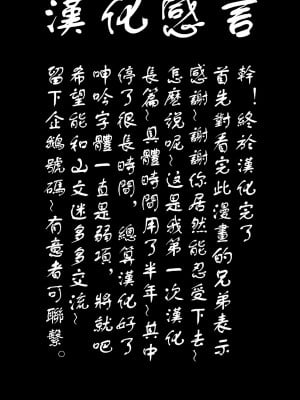 漢化感言
幹！終於漢化完了
首先對看完此漫畫的兄弟表示
感謝~謝你居然能忍受下去~
怎麼說呢~這是我第一次漢化
長篇~具體時間用了半年~其中
停了很長時間，總算漢化好了
呻吟字體一直是弱項，將就吧
希望能和山文迷多多交流~
留下企鵝號碼~有意者可聯繫。